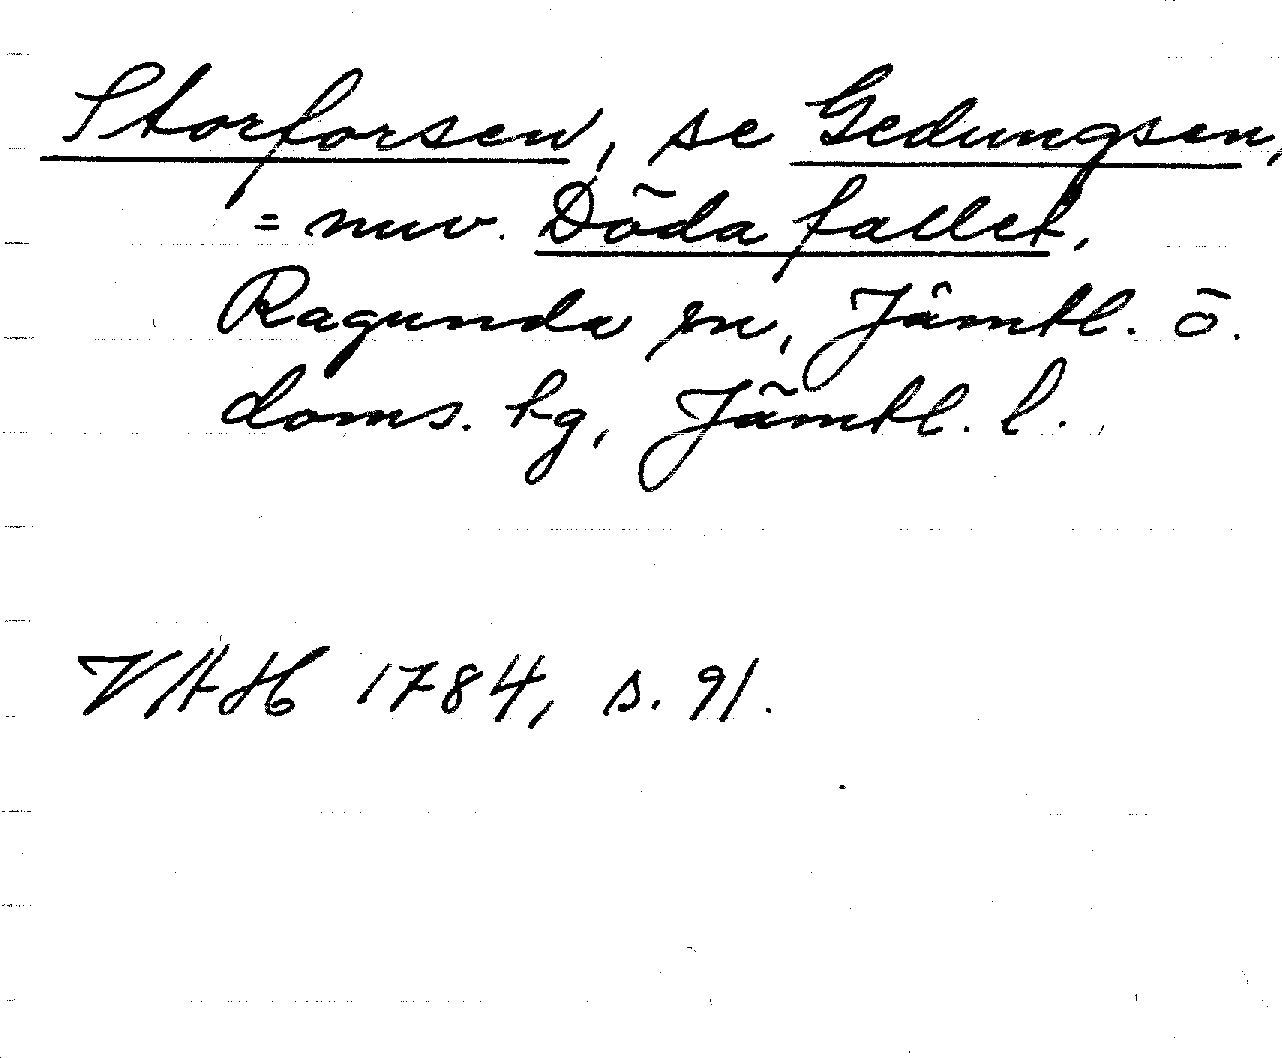 Storforsen, se Gedungsen,
= nuv. Döda fallet,
Ragunda sn, Jämtl. ö.
doms. hg, Jämtl. l.
VAH 1784, s. 91.